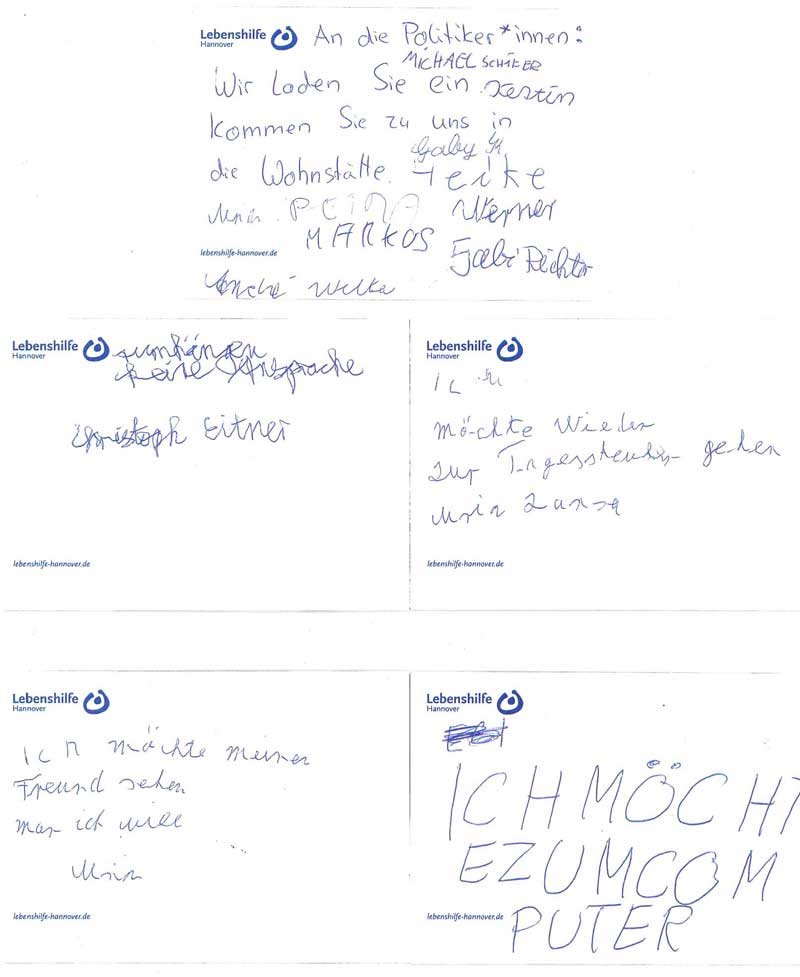 Lebenshilfe
Hannover
An die Politiker*innen:
MICHAEL SCHÄFER
Wir laden Sie ein Kerstin
kommen Sie zu uns in
Gaby
die Wohnstätte. Heike
Werner
MARKOS
Gabi Richter
lebenshilfe-hannover.de
André Welke
Lebenshilfe
Hannover
rumhängen
keine Ansprache
Christoph Eitner
lebenshilfe-hannover.de
Lebenshilfe
Hannover
Ich
möchte wieder
zur gehen
lebenshilfe-hannover.de
Lebenshilfe
Hannover
Ich möchte meinen
Freund sehen
ich will
lebenshilfe-hannover.de
Lebenshilfe
Hannover
ICH MÖCHT
E ZUM COM
PUTER
lebenshilfe-hannover.de